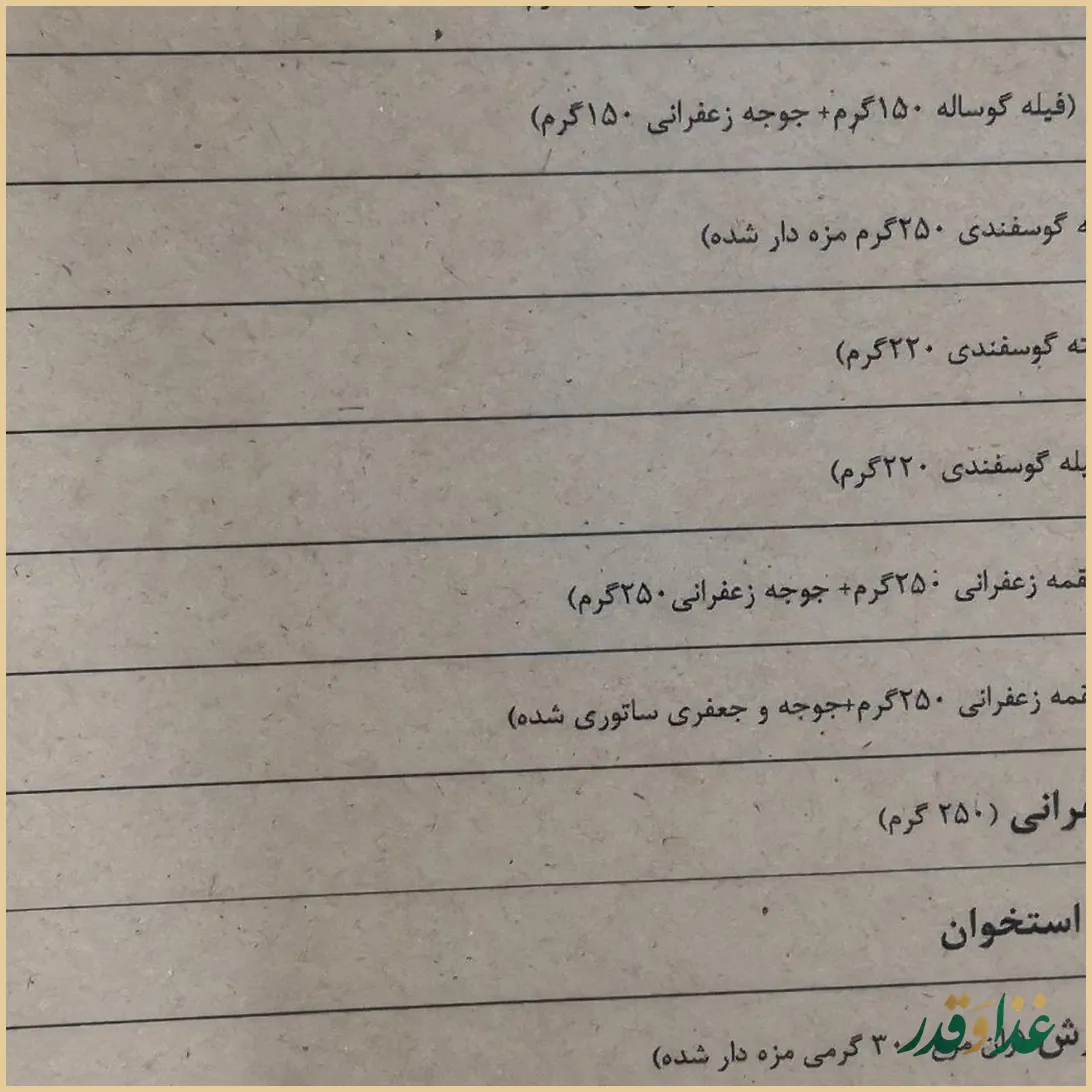 (فیله گوساله ۱۵۰گرم+ جوجه زعفرانی ۱۵۰گرم)
گوسفندی ۲۵۰گرم مزه دار شده)
گوسفندی ۲۲۰گرم)
گوسفندی ۲۲۰گرم)
زعفرانی ۲۵۰گرم+ جوجه زعفرانی ۲۵۰گرم)
زعفرانی ۲۵۰گرم+جوجه و جعفری ساتوری شده)
(۲۵۰ گرم)
استخوان
گرمی مزه دار شده)
غذا و قدر